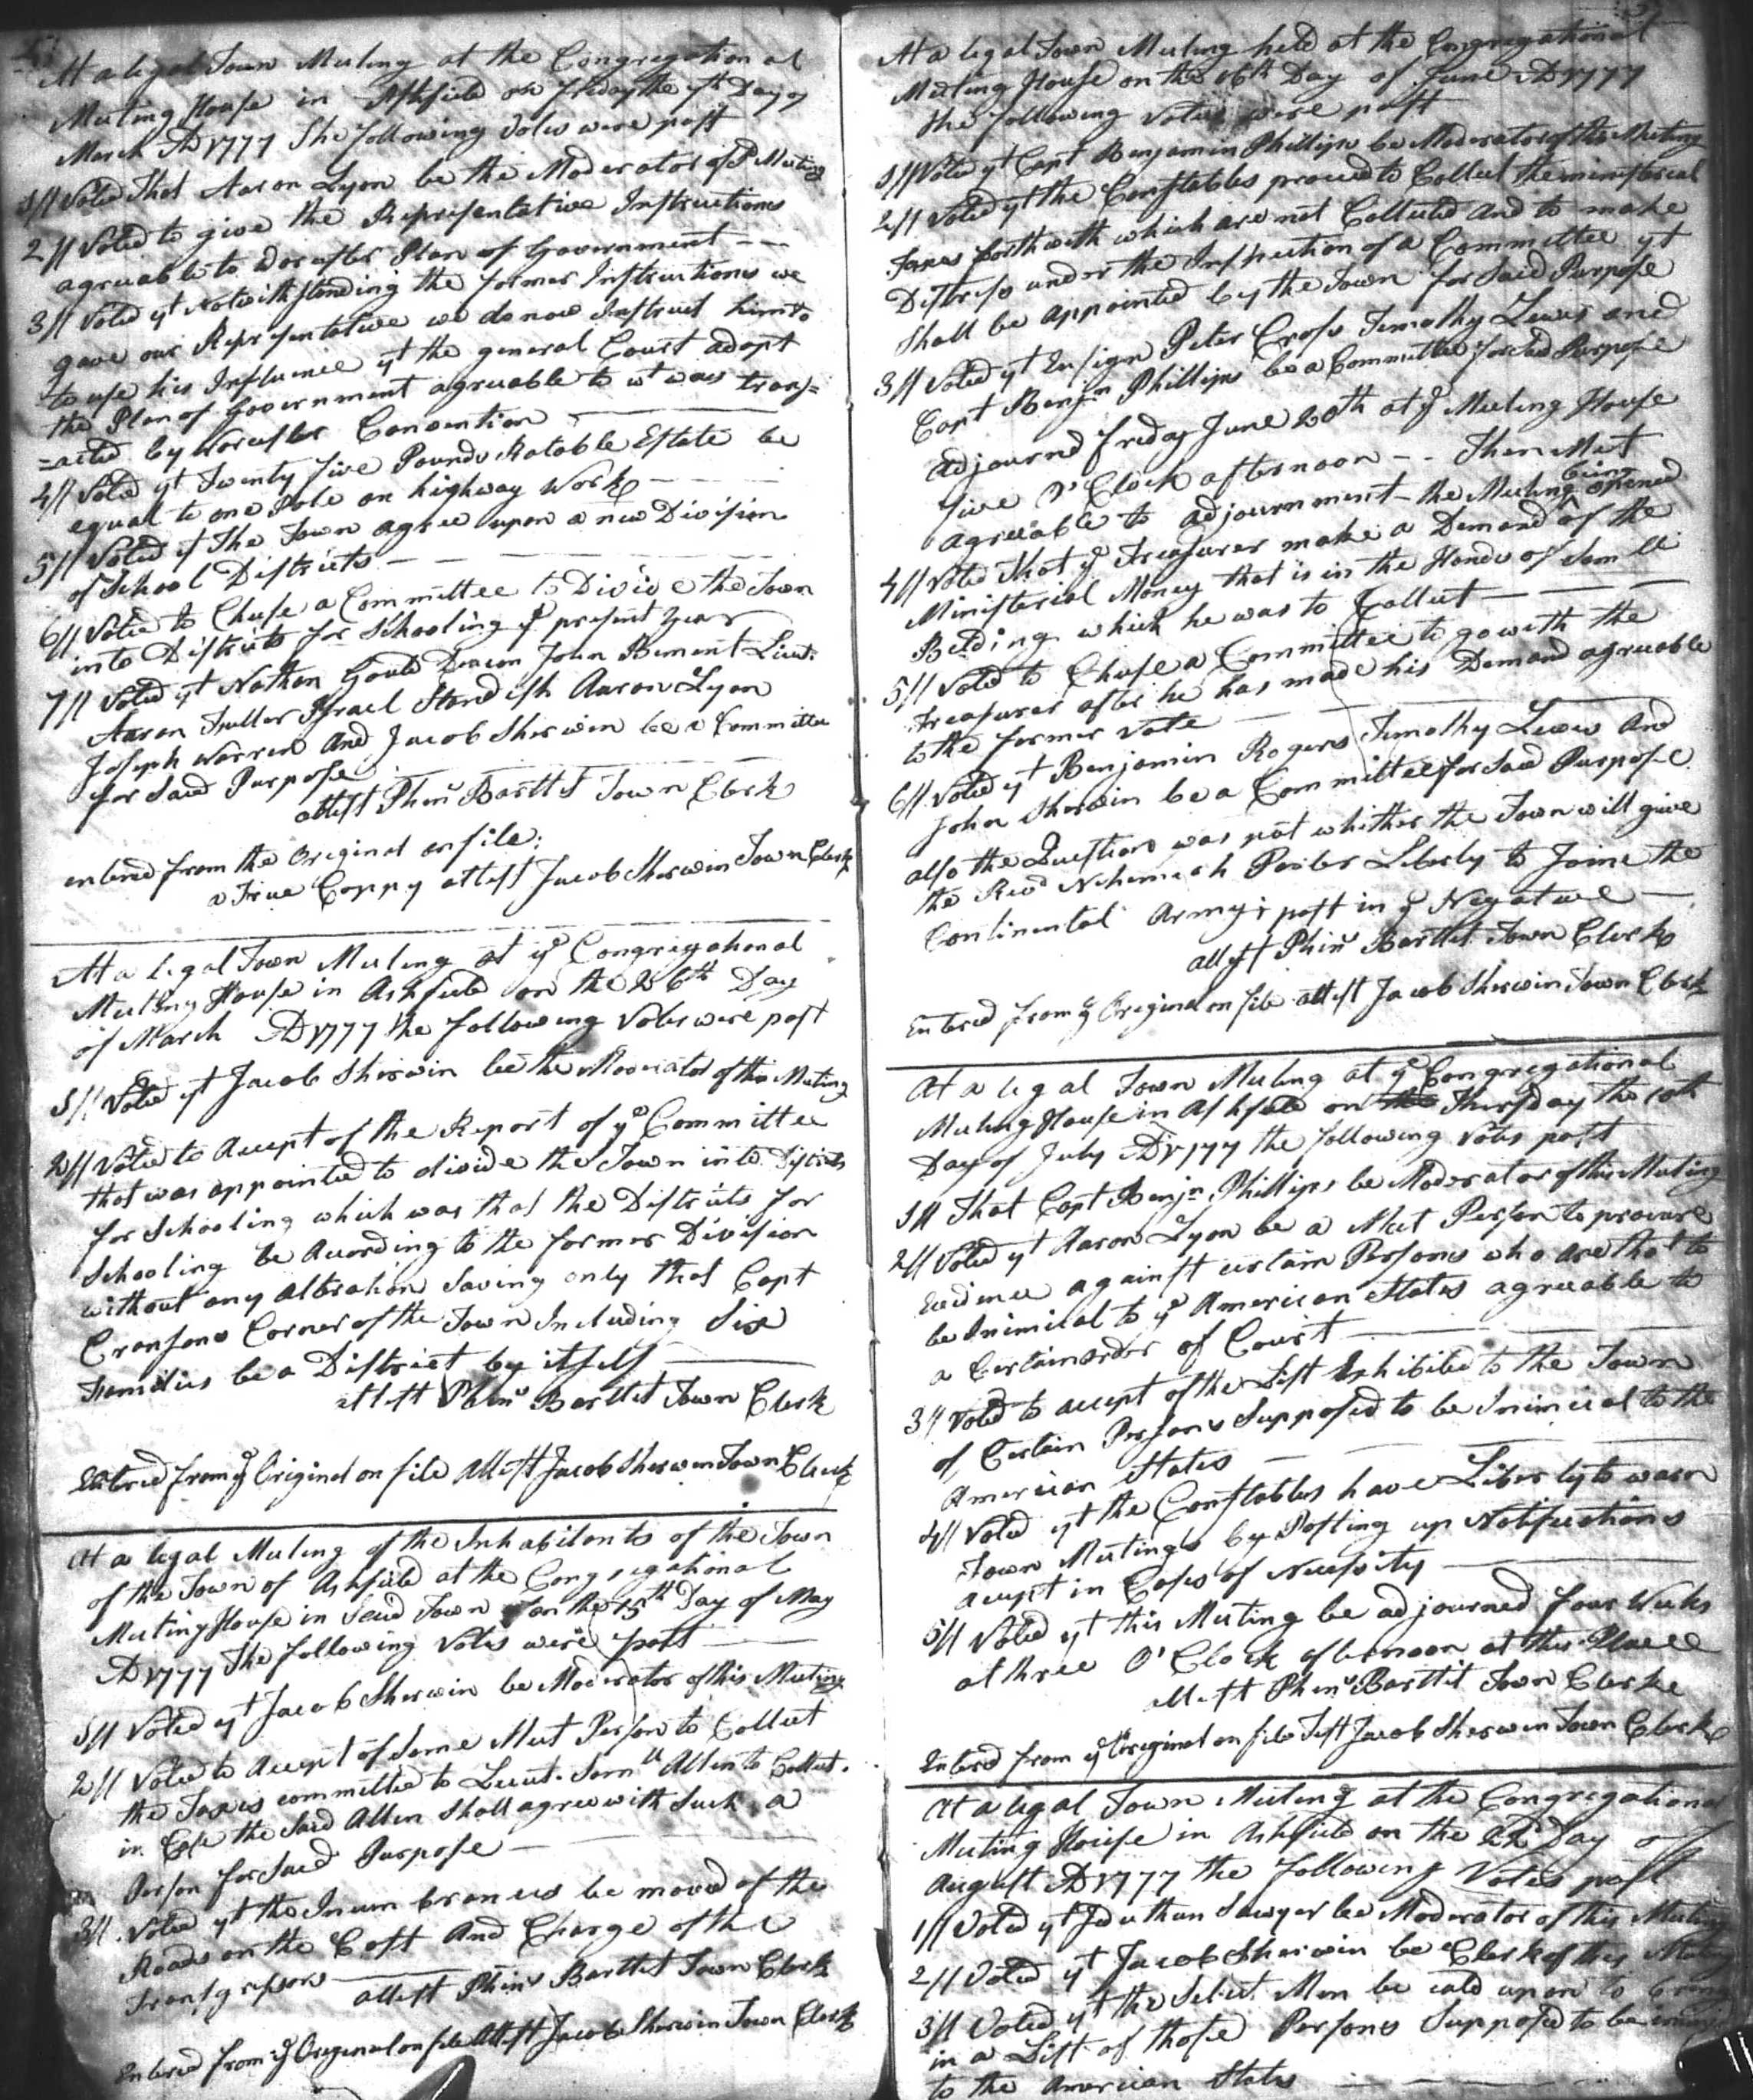 At a legal Town Meeting at the Congregational
Meeting House in Ashfield on Friday the 7th Day of
March AD 1777 The following Votes were past
1// Voted That Aaron Lyon be the Moderator of sd Meeting
2// Voted to give the Representative Instructions
agreable to Worcester Plan of Government
3// Voted yt Notwithstanding the former Instructions we
gave our Representative we do now Instruct him to
to use his Influence yt the general Court adopt
the Plan of Government agreable to wt was trans=
=acted by Worcester Convention
4// Voted yt Twenty five Pounds Ratable Estate be
equal to one Pole on highway Work
5// Voted yt The Town agree upon a new Division
of School Districts
6// Voted to Chuse a Committee to Divide the Town
into Districts for Schooling ye present Year
7// Voted yt Nathan Gould Deacon John Bement Lieut.
Aaron Fuller Israel Standish Aaron Lyon
Joseph Warren And Jacob Sherwin be a Committee
for Said Purpose
attest Phins Bartlet Town Clerk
entered from the Original on file:
a True Coppy attest Jacob Sherwin Town Clerk
At a legal Town Meeting at ye Congregational
Meeting House in Ashfield on the 26th Day
of March AD 1777 the following Votes were past
1// Voted yt Jacob Sherwin be the Moderator of this Meeting
2// Voted to Accept of the Report of ye Committee
that was appointed to divide the Town into Districts
for Schooling which was that the Districts for
Schooling be Acording to the former Division
without any Alteration Saving only that Capt
Cransons Corner of the Town Including Six
Families be a District by itself
attest Phins Bartlet Town Clerk
Entered from ye Original on file Attest Jacob Sherwin Town Clerk
At a legal Meeting of the Inhabitants of the Town
of the Town of Ashfield at the Congregational
Meeting House in Said Town on the 15th Day of May
AD 1777 The following Votes were past
1// Voted yt Jacob Sherwin be Moderator of this Meeting
2// Voted to Accept of Some Meet Person to Collect
the Taxes committed to Lieut. Samll Allen to Collect.
in Case the Said Allen Shall agree with Such a
Person for Said Purpose
3// Voted yt the Incumbrances be moved of the
Roads on the Cost And Charge of the
Transgressors
attest Phins Bartlet Town Clerk
Entered from ye Original on file Attest Jacob Sherwin Town Clerk
At a legal Town Meeting held at the Congregational
Meeting House on the 16th Day of June AD 1777
the following Votes were past
1// Voted yt Capt Benjamin Phillips be Moderator of this Meeting
2// Voted yt the Constables proceed to Collect the ministerial
Taxes forthwith which are not Collected and to make
Distress under the Inspection of a Committee yt
Shall be appointed by the Town for Said Purpose
3// Voted yt Ensign Peter Cross Timothy Lewis and
Capt Benjn Phillips be a Committee for sd Purpose
adjournd Friday June 20th at ye Meeting House
five O'Clock afternoon -- Then Met
agreable to adjournment - the Meeting being opened
4// Voted That ye Treasurer make a Demand of the
Ministerial Money that is in the Hands of Samll
Belding which he was to Collect
5// Voted to Chuse a Committee to go with the
Treasurer after he has made his Demand agreable
to the former Vote
6// Voted yt Benjamin Rogers Timothy Lewis And
John Sherwin be a Committee for Said Purpose
also the Question was put whither the Town will give
the Revd Nehemiah Porter Liberty to Joine the
Continental Army; past in ye Negative
attest Phins Bartlet Town Clerk
Entered from ye Original on file attest Jacob Sherwin Town Clerk
At a legal Town Meeting at ye Congregational
Meeting House in Ashfield on Thursday the 10th
Day of July AD 1777 the following Votes past
1// That Capt Benjn Phillips be Moderator of this Meeting
2// Voted yt Aaron Lyon be a Meet Person to procure
Evidence against certain Persons who are thot to
be Inimical to ye American States agreable to
a Certain order of Court
3// Voted to accept of the List Exhibited to the Town
of Certain Persons Supposed to be Inimical to the
American States
4// Voted yt the Constables have Liberty to warn
Town Meetings by Posting up Notifications
accept in Cases of Necessity
5// Voted yt this Meeting be adjourned four Weeks
at three O'Clock afternoon at this Place
Attest Phins Bartlet Town Clerke
Entered from ye Original on file Test Jacob Sherwin Town Clerk
At a legal Town Meeting at the Congregational
Meeting House in Ashfield on the 22d Day of
August AD 1777 the following Votes past
1// Voted yt Jonathan Sawyer be Moderator of this Meeting
2// Voted yt Jacob Sherwin be Clerk of this Meeting
3// Voted yt the Select Men be cald upon to bring
in a List of those Persons Supposed to be
to the American States